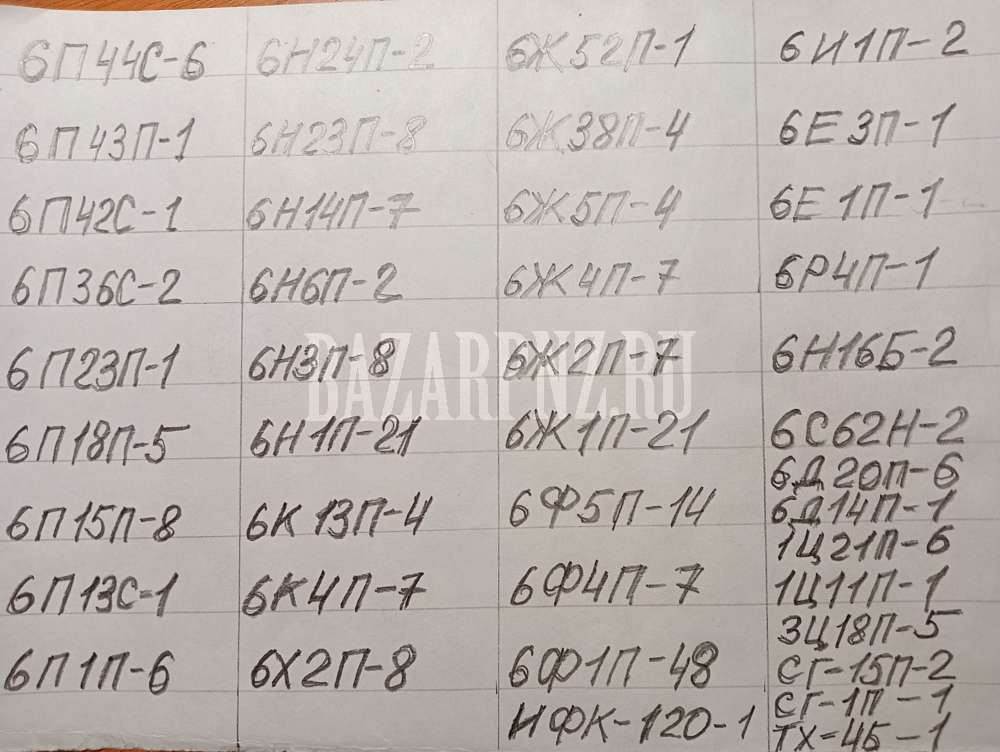 6П44С-6 6Н24П-2 6Ж52П-1 6И1П-2
6П43П-1 6Н23П-8 6Ж38П-4 6Е3П-1
6П42С-1 6Н14П-7 6Ж5П-4 6Е1П-1
6П36С-2 6Н6П-2 6Ж4П-7 6Р4П-1
6П23П-1 6Н3П-8 6Ж2П-7 6Н16Б-2
6П18П-5 6Н1П-21 6Ж1П-21 6С62Н-2
6Д20П-6
6П15П-8 6К13П-4 6Ф5П-14 6Д14П-1
1Ц21П-6
6П13С-1 6К4П-7 6Ф4П-7 1Ц11П-1
3Ц18П-5
6П1П-6 6Х2П-8 6Ф1П-48 СГ-15П-2
СГ-1П-1
ИФК-120-1 ТХ-4Б-1
BAZARPNZ.RU